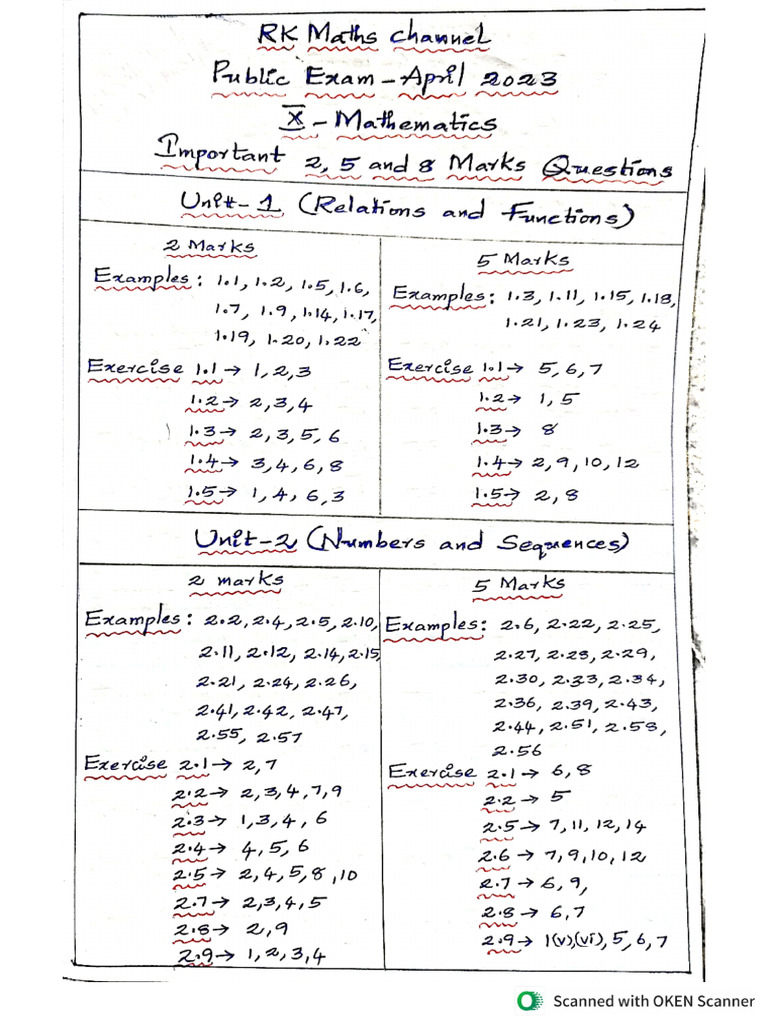 RK Maths channel
Public Exam - April 2023
X - Mathematics
Important 2, 5 and 8 Marks Questions
Unit- 1 (Relations and Functions)
2 Marks
Examples: 1.1, 1.2, 1.5, 1.6,
1.7, 1.9, 1.14, 1.17,
1.19, 1.20, 1.22
Exercise 1.1→ 1, 2, 3
1.2→ 2, 3, 4
1.3→ 2, 3, 5, 6
1.4→ 3, 4, 6, 8
1.5→ 1, 4, 6, 3
5 Marks
Examples: 1.3, 1.11, 1.15, 1.18,
1.21, 1.23, 1.24
Exercise 1.1→ 5, 6, 7
1.2→ 1, 5
1.3→ 8
1.4→ 2, 9, 10, 12
1.5→ 2, 8
Unit-2 (Numbers and Sequences)
2 marks
Examples: 2.2, 2.4, 2.5, 2.10,
2.11, 2.12, 2.14, 2.15
2.21, 2.24, 2.26,
2.41, 2.42, 2.47,
2.55, 2.57
Exercise 2.1→ 2, 7
2.2→ 2, 3, 4, 7, 9
2.3→ 1, 3, 4, 6
2.4→ 4, 5, 6
2.5→ 2, 4, 5, 8, 10
2.7→ 2, 3, 4, 5
2.8→ 2, 9
2.9→ 1, 2, 3, 4
5 Marks
Examples: 2.6, 2.22, 2.25,
2.27, 2.28, 2.29,
2.30, 2.33, 2.34,
2.36, 2.39, 2.43,
2.44, 2.51, 2.58,
2.56
Exercise 2.1→ 6, 8
2.2→ 5
2.5→ 7, 11, 12, 14
2.6→ 7, 9, 10, 12
2.7→ 6, 9,
2.8→ 6, 7
2.9→ 1(v),(vi), 5, 6, 7
Scanned with OKEN Scanner